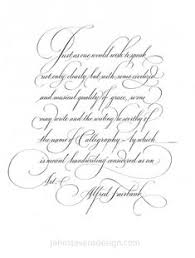 Just as one would wish to speak
not only clearly, but with some accent
and musical quality of grace, so we
may write and the writing be worthy of
the name of Calligraphy - by which
is meant handwriting considered as an
Art.
Alfred Fairbank